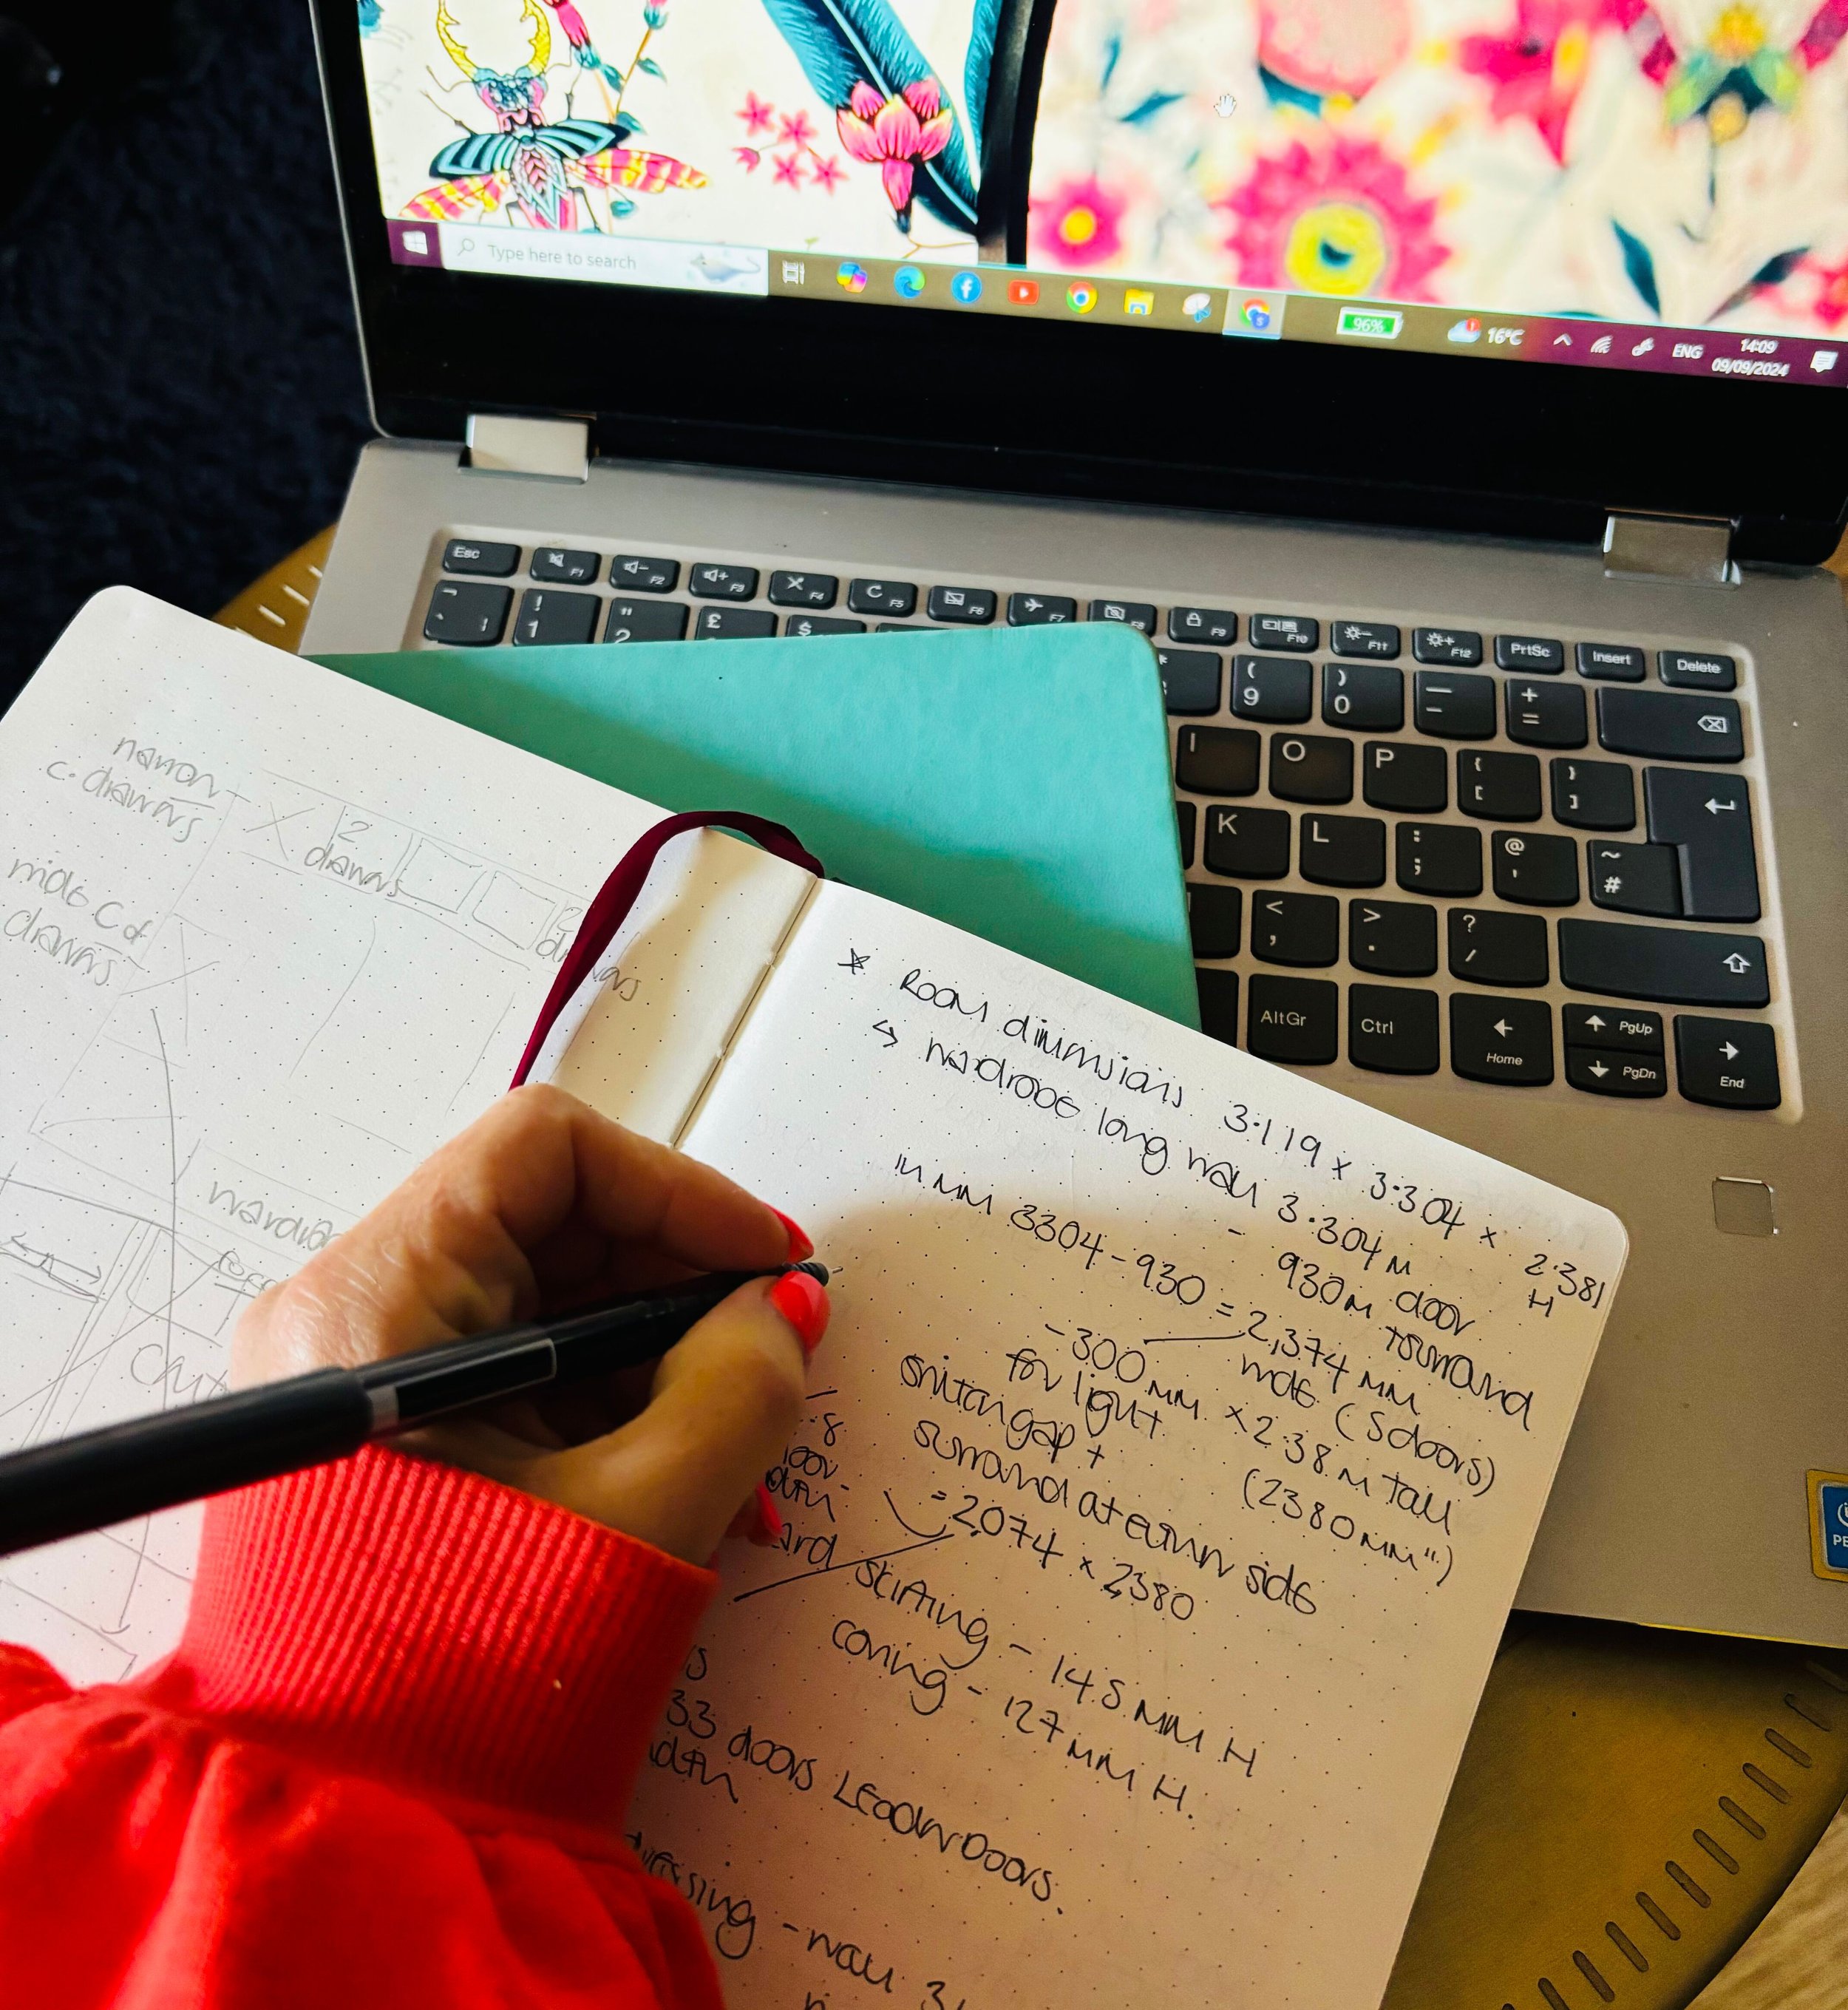 Type here to search
96%
16°C
ENG
14:09
09/09/2024
Esc
F1
F2
F3
F4
F5
F6
F7
F8
F9
F10
F11
F12
PrtSc
Insert
Delete
!
1
"
2
£
$
(
9
)
0
—
-
+
=
I
O
P
{
[
}
]
K
L
:
;
@
'
~
#
<
,
>
.
?
/
AltGr
Ctrl
Home
PgUp
PgDn
End
narrow
c. drawers
2
drawers
2
drawers
wide C of
drawers
* Room dimensions 3.119 x 3.304 x 2.381
H
↳ wardrobe long wall 3.304m
- 930m door
surround
in mm 3304-930 = 2,374 mm
wide (5 doors)
-300mm x 2.38m tall
for light
switch gap +
(2380mm")
surround at either side
= 2,074 x 2,380
skirting - 145mm H
coving - 127mm H.
33 doors LEadwDoors.
- wall 3